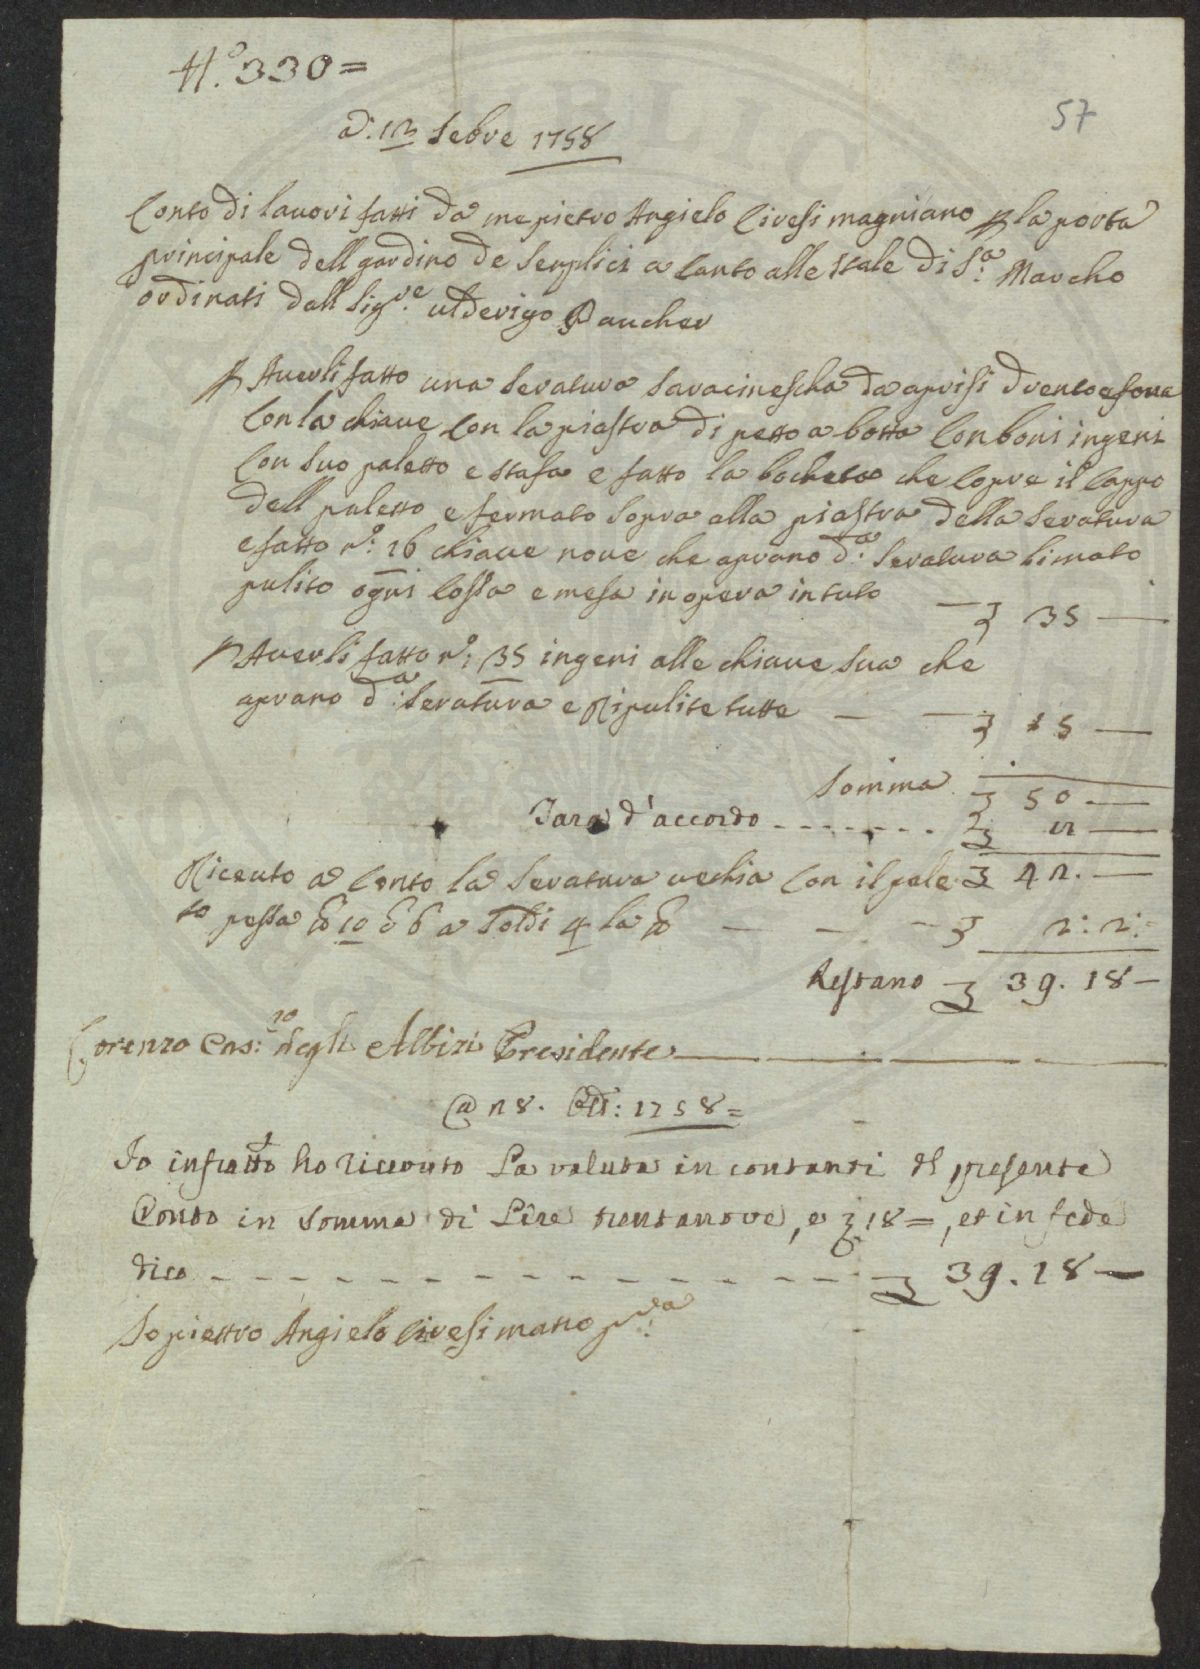 N.º 330=
57
A dì: 12 Sebre 1758
Conto di lavori fatti da me pietro Angielo Civesi magniano p la porta
principale dell gardino de Senplici a canto alle stale di S.ª Marcho
ordinati dall Sig.re ulderigo
p Auerli fatto una Seratura saracinescha da aprisi drento e fora
Con la chiave Con la piastra di petto a botta Con boni ingeni
Con suo paletto e stafa e fatto la bocheta che copre il cappo
dell paletto e fermato sopra alla piastra della seratura
e fatto n.º: 16 chiave nove che aprano d.ª Seratura limato
pulito ogni cossa e mesa in opera in tuto — 35 —
p Auerli fatto n.º: 35 ingeni alle chiave sua che
aprano d.ª Seratura e Ripulite tutte — — 15 —
Somma 50 —
Tara d'accordo - - - - - - - —
Riceuto a Conto la Seratura vechia Con il pale 42. —
to pessa 10 6 a Soldi 4 la — — — 2: 2: -
Restano 39. 18 —
Lorenzo degli Albizi Presidente
A 28. 1758=
Io infratto ho riceuuto La valuta in contanti del presente
Conto in somma di Lire trentanove, e 18=, et in fede
dico - - - - - - - - - - - - - - 39. 18 —
Io piettro Angielo Civesi